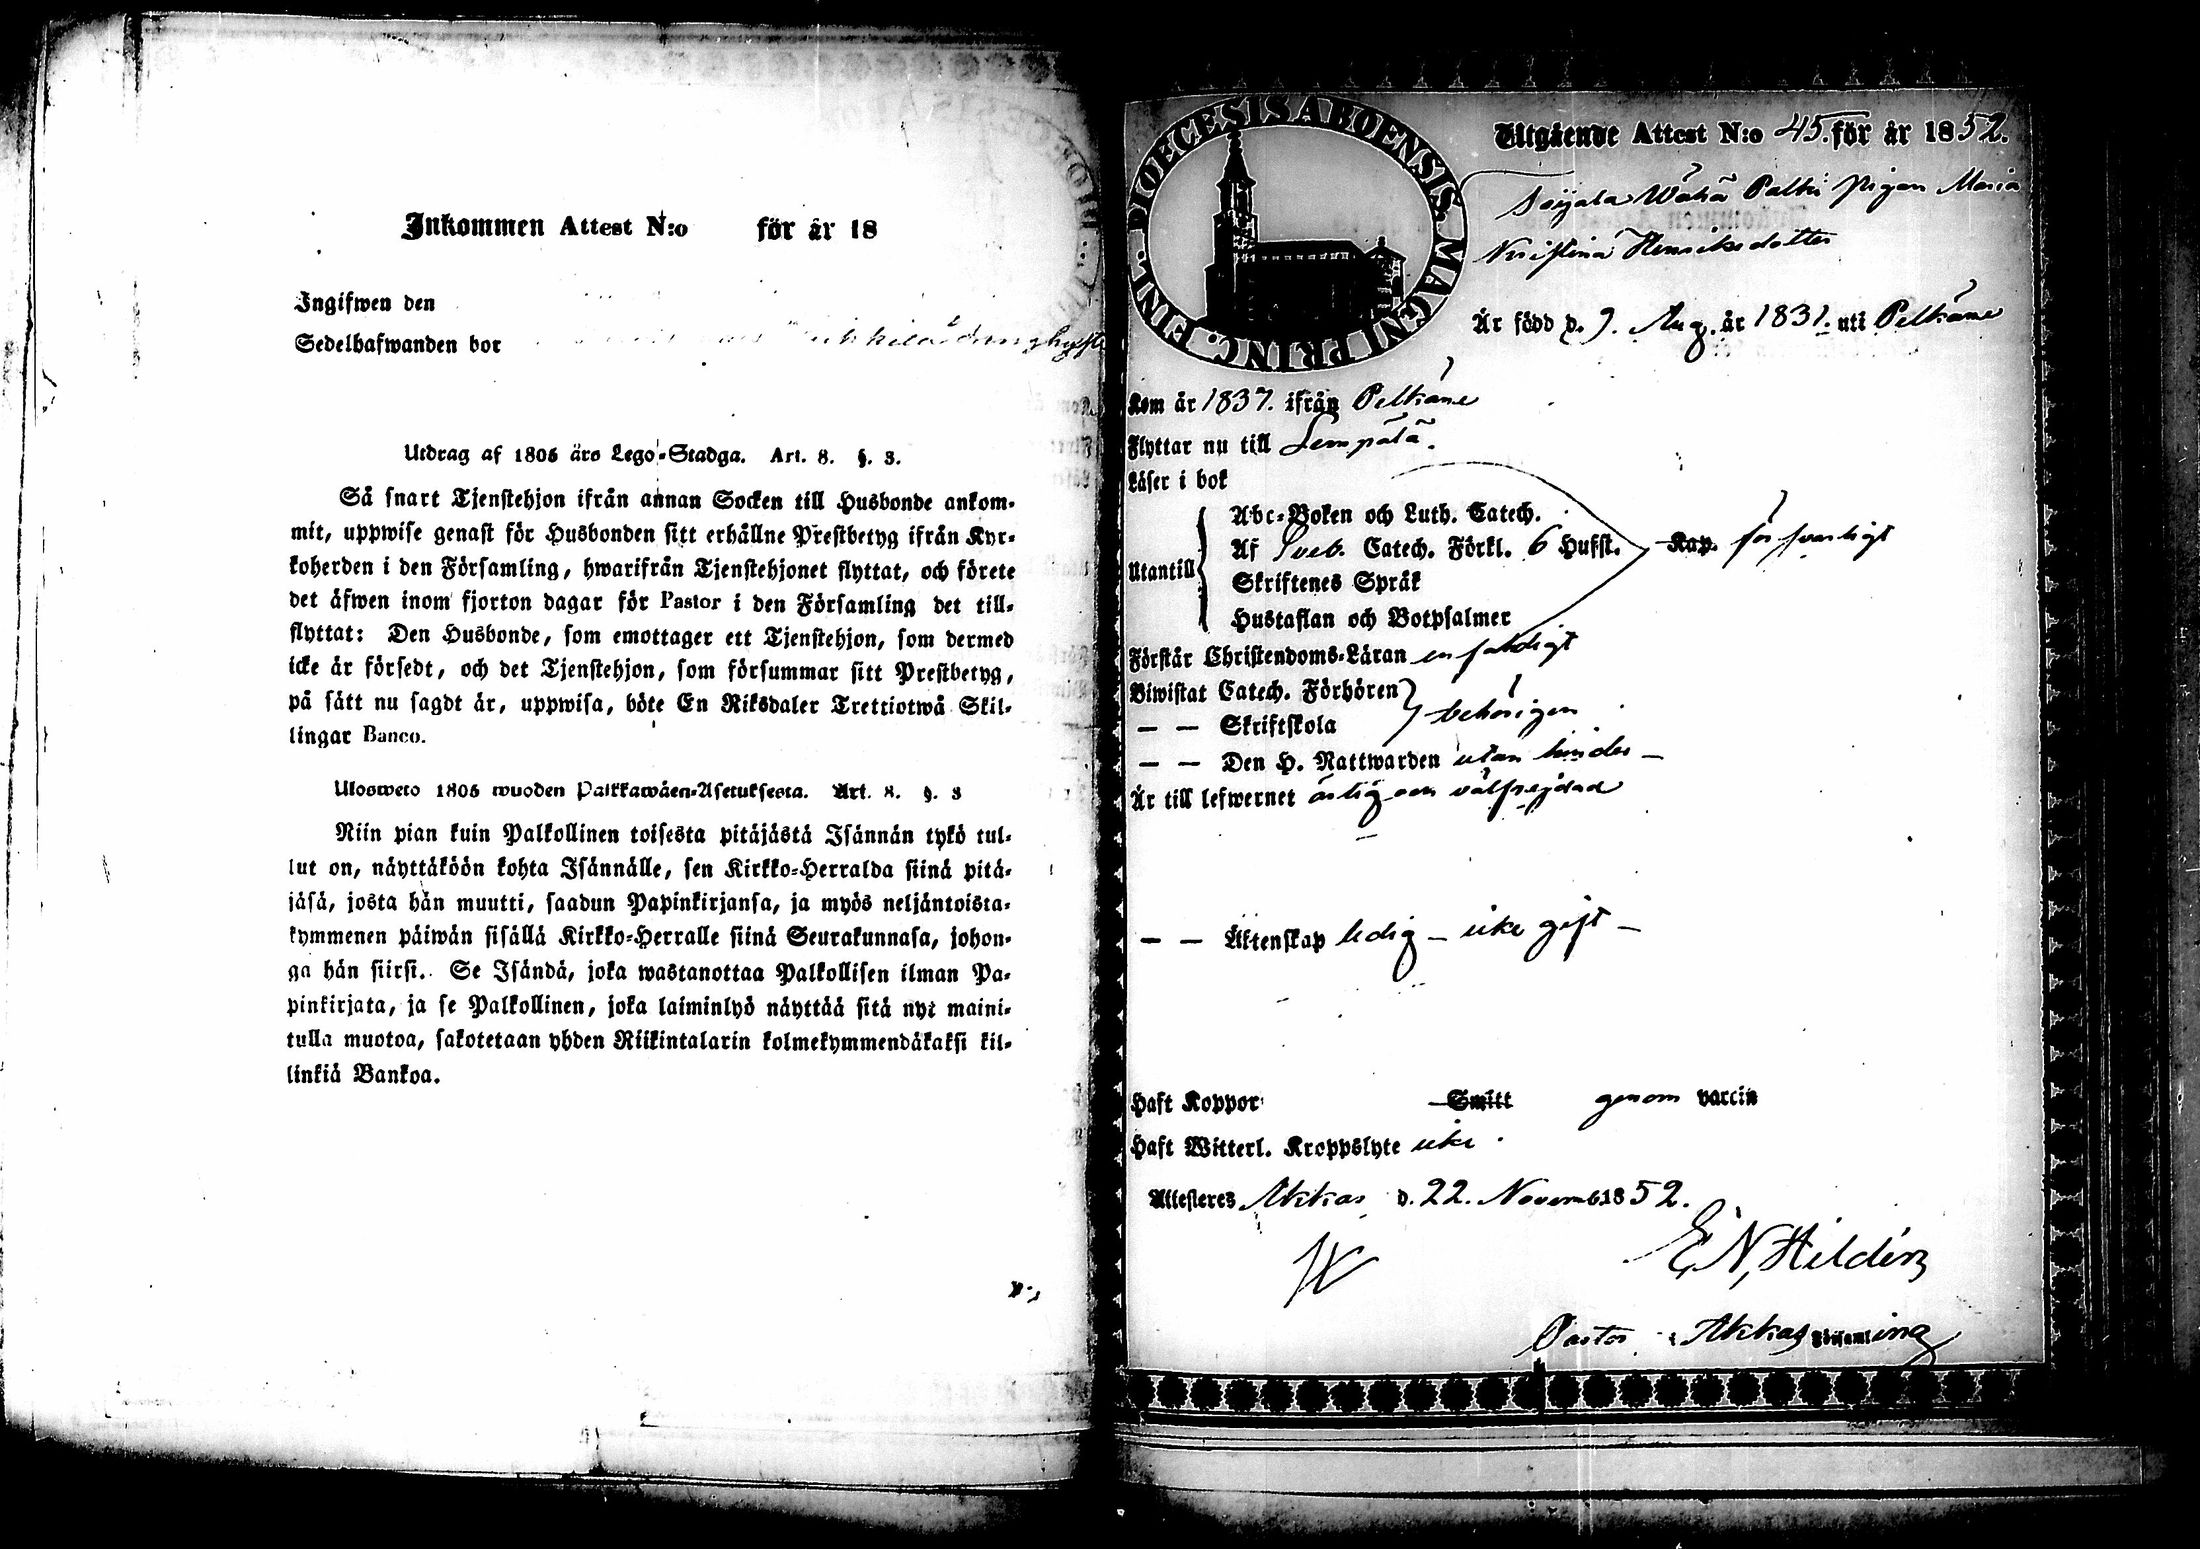 Inkommen Attest N:o för år 18
Ingifwen den
Sedelhafwanden bor
Utdrag af 1805 års Lego-Stadga. Art. 8. §. 3.
Så snart Tjenstehjon ifrån annan Socken till Husbonde ankom-
mit, uppwise genast för Husbonden sitt erhållne Prestbetyg ifrån Kyr-
koherden i den Församling, hwarifrån Tjenstehjonet flyttat, och förete
det äfwen inom fjorton dagar för Pastor i den Församling det till-
flyttat: Den Husbonde, som emottager ett Tjenstehjon, som dermed
icke är försedt, och det Tjenstehjon, som försummar sitt Prestbetyg,
på sätt nu sagdt är, uppwisa, böte En Riksdaler Trettiotwå Skil-
lingar Banco.
Ulosweto 1805 wuoden Palkkawäen-Asetuksesta. Art. 8. §. 3
Niin pian kuin Palkollinen toisesta pitäjästä Isännän tykö tul-
lut on, näyttäköön kohta Isännälle, sen Kirkko-Herralda siinä pitä-
jäsä, josta hän muutti, saadun Papinkirjansa, ja myös neljäntoista-
kymmenen päiwän sisällä Kirkko-Herralle siinä Seurakunnasa, johon-
ga hän siirsi. Se Isändä, joka wastanottaa Palkollisen ilman Pa-
pinkirjata, ja se Palkollinen, joka laiminlyö näyttää sitä nyt maini-
tulla muotoa, sakotetaan yhden Riikintalarin kolmekymmendäkaksi kil-
linkiä Bankoa.
DIOECESIS ABOENSIS. MAGNI PRINC. FINL.
Utgående Attest N:o 45. för år 1852.
Wähä Palhi pigan Maria
Kristina Henriksdotter
Är född d. 9. Aug. år 1831. uti Pelkäne
Kom år 1837. ifrån Pelkäne
Flyttar nu till Lempälä.
Läser i bok
Abc-Boken och Luth. Catech.
Utantill Af Sveb. Catech. Förkl. 6 Hufst. Kap. försvarligt
Skriftenes Språk
Hustaflan och Botpsalmer
Förstår Christendoms-Läran enfaldigt
Biwistat Catech. Förhören
— — Skriftskola behörigen
— — Den H. Nattwarden utan hinder —
Är till lefwernet ärlig och välfrejdad
— — Äktenskap ledig — icke gift —
Haft Koppor Smitt genom vaccin
Haft Witterl. Kroppslyte icke.
Attesteres Akkas d. 22. Novemb. 1852.
E. N. Hildén
Pastor i Akkas Församling